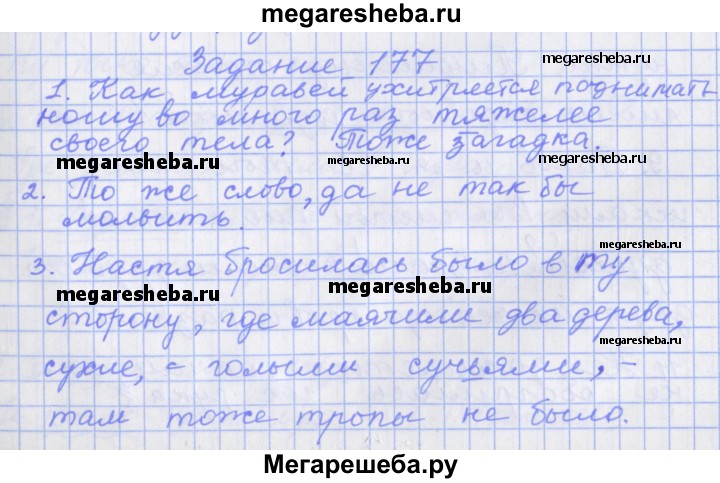 megaresheba.ru
Задание 177
megaresheba.ru
1. Как муравей ухитряется поднимать
ношу во много раз тяжелее
своего тела? Тоже загадка.
megaresheba.ru
megaresheba.ru
megaresheba.ru
2. То же слово, да не так бы
молвить.
megaresheba.ru
3. Настя бросилась было в ту
megaresheba.ru
megaresheba.ru
megaresheba.ru
сторону, где маячили два дерева,
сухие, - голыми сучьями, -
там тоже тропы не было.
Мегарешеба.ру